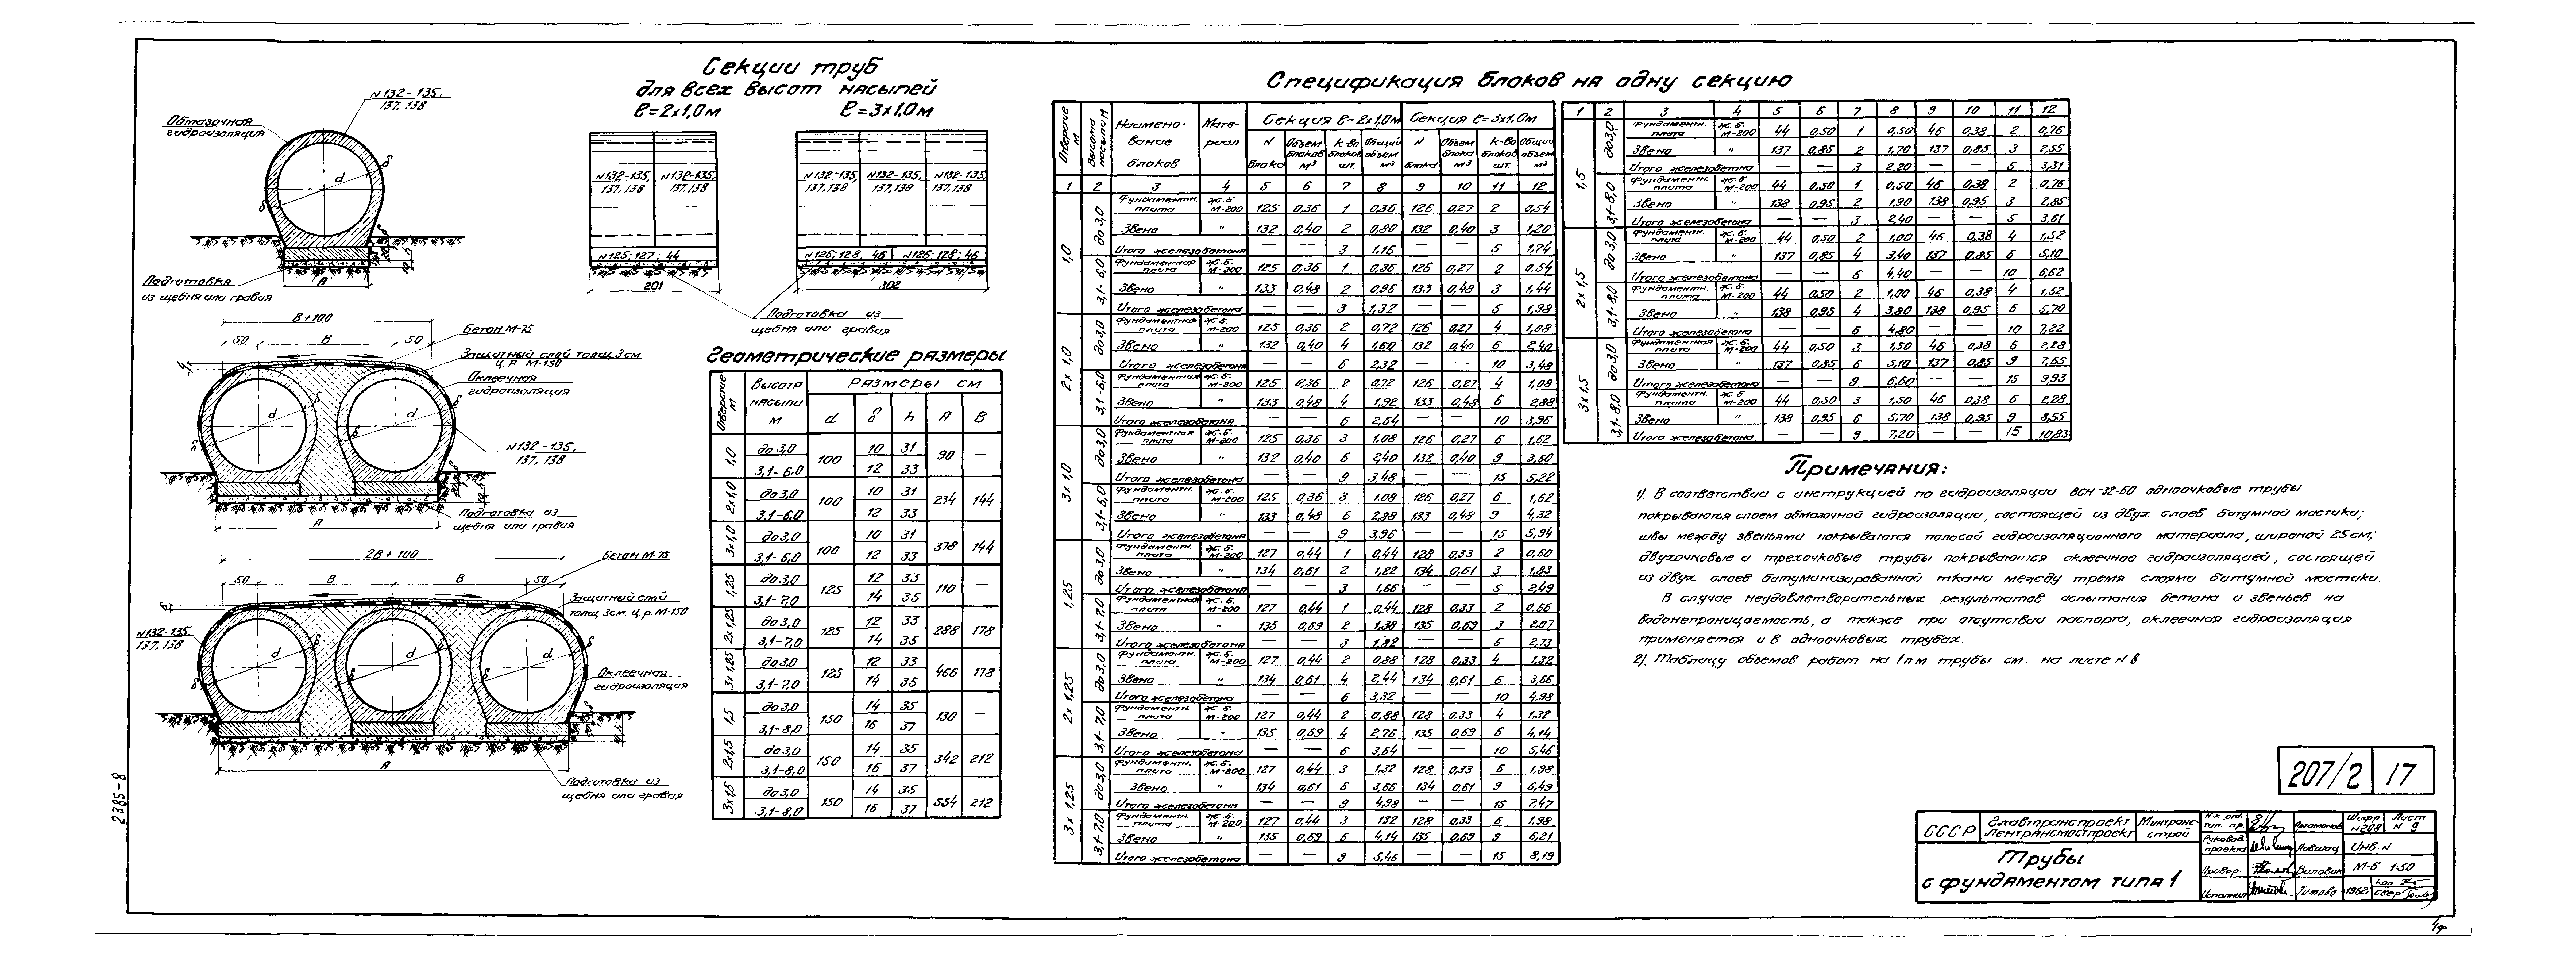 Секции труб
для всех высот насыпей
ℓ=2х1,0м ℓ=3х1,0м
N132-135, 137, 138
Обмазочная гидроизоляция
d
δ
Подготовка из щебня или гравия
А
N132-135, 137,138 N132-135, 137,138
N125; 127; 44
201
N132-135, 137,138 N132-135, 137,138 N132-135, 137,138
N126; 128; 46 N126; 128; 46
302
Подготовка из щебня или гравия
В+100
50 В 50
Бетон М-75
Защитный слой толщ. 3см ц.р. М-150
Оклеечная гидроизоляция
N132-135, 137, 138
Подготовка из щебня или гравия
А
2В+100
50 В В 50
Бетон М-75
Защитный слой толщ 3см. ц.р. М-150
N132-135, 137, 138
Оклеечная гидроизоляция
Подготовка из щебня или гравия
А
Геометрические размеры
Отверстие м | Высота насыпи м | Размеры см
d δ h А В
1,0 до 3,0 100 10 31 90 —
3,1-6,0 12 33
2х1,0 до 3,0 100 10 31 234 144
3,1-6,0 12 33
3х1,0 до 3,0 100 10 31 378 144
3,1-6,0 12 33
1,25 до 3,0 125 12 33 110 —
3,1-7,0 14 35
2х1,25 до 3,0 125 12 33 288 178
3,1-7,0 14 35
3х1,25 до 3,0 125 12 33 466 178
3,1-7,0 14 35
1,5 до 3,0 150 14 35 130 —
3,1-8,0 16 37
2х1,5 до 3,0 150 14 35 342 212
3,1-8,0 16 37
3х1,5 до 3,0 150 14 35 554 212
3,1-8,0 16 37
Спецификация блоков на одну секцию
Отверстие м | Высота насыпи м | Наименование блоков | Материал | Секция ℓ=2х1,0м | Секция ℓ=3х1,0м
N блока | Объем блоков м³ | к-во блоков шт. | Общий объем м³ | N блока | Объем блока м³ | к-во блоков шт. | Общий объем м³
1 2 3 4 5 6 7 8 9 10 11 12
1,0 до 3,0 Фундаментн. плита ж.б. М-200 125 0,36 1 0,36 126 0,27 2 0,54
Звено " 132 0,40 2 0,80 132 0,40 3 1,20
Итого железобетона — — 3 1,16 — — 5 1,74
3,1-6,0 Фундаментная плита ж.б. М-200 125 0,36 1 0,36 126 0,27 2 0,54
Звено " 133 0,48 2 0,96 133 0,48 3 1,44
Итого железобетона — — 3 1,32 — — 5 1,98
2х1,0 до 3,0 Фундаментная плита ж.б. М-200 125 0,36 2 0,72 126 0,27 4 1,08
Звено " 132 0,40 4 1,60 132 0,40 6 2,40
Итого железобетона — — 6 2,32 — — 10 3,48
3,1-6,0 Фундаментная плита ж.б. М-200 125 0,36 2 0,72 126 0,27 4 1,08
Звено " 133 0,48 4 1,92 133 0,48 6 2,88
Итого железобетона — — 6 2,64 — — 10 3,96
3х1,0 до 3,0 Фундаментная плита ж.б. М-200 125 0,36 3 1,08 126 0,27 6 1,62
Звено " 132 0,40 6 2,40 132 0,40 9 3,60
Итого железобетона — — 9 3,48 — — 15 5,22
3,1-6,0 Фундаментн. плита ж.б. М-200 125 0,36 3 1,08 126 0,27 6 1,62
Звено " 133 0,48 6 2,88 133 0,48 9 4,32
Итого железобетона — — 9 3,96 — — 15 5,94
1,25 до 3,0 Фундаментн. плита ж.б. М-200 127 0,44 1 0,44 128 0,33 2 0,60
Звено " 134 0,61 2 1,22 134 0,61 3 1,83
Итого железобетона — — 3 1,66 — — 5 2,49
3,1-7,0 Фундаментная плита ж.б. М-200 127 0,44 1 0,44 128 0,33 2 0,66
Звено " 135 0,69 2 1,38 135 0,69 3 2,07
Итого железобетона — — 3 1,82 — — 5 2,73
2х1,25 до 3,0 Фундаментн. плита ж.б. М-200 127 0,44 2 0,88 128 0,33 4 1,32
Звено " 134 0,61 4 2,44 134 0,61 6 3,66
Итого железобетона — — 6 3,32 — — 10 4,98
3,1-7,0 Фундаментн. плита ж.б. М-200 127 0,44 2 0,88 128 0,33 4 1,32
Звено " 135 0,69 4 2,76 135 0,69 6 4,14
Итого железобетона — — 6 3,64 — — 10 5,46
3х1,25 до 3,0 Фундаментн. плита ж.б. М-200 127 0,44 3 1,32 128 0,33 6 1,98
Звено " 134 0,61 6 3,66 134 0,61 9 5,49
Итого железобетона — — 9 4,98 — — 15 7,47
3,1-7,0 Фундаментн. плита ж.б. М-200 127 0,44 3 1,32 128 0,33 6 1,98
Звено " 135 0,69 6 4,14 135 0,69 9 6,21
Итого железобетона — — 9 5,46 — — 15 8,19
1 2 3 4 5 6 7 8 9 10 11 12
1,5 до 3,0 Фундаментн. плита ж.б. М-200 44 0,50 1 0,50 46 0,38 2 0,76
Звено " 137 0,85 2 1,70 137 0,85 3 2,55
Итого железобетона — — 3 2,20 — — 5 3,31
3,1-8,0 Фундаментн. плита ж.б. М-200 44 0,50 1 0,50 46 0,38 2 0,76
Звено " 138 0,95 2 1,90 138 0,95 3 2,85
Итого железобетона — — 3 2,40 — — 5 3,61
2х1,5 до 3,0 Фундаментн. плита ж.б. М-200 44 0,50 2 1,00 46 0,38 4 1,52
Звено " 137 0,85 4 3,40 137 0,85 6 5,10
Итого железобетона — — 6 4,40 — — 10 6,62
3,1-8,0 Фундаментн. плита ж.б. М-200 44 0,50 2 1,00 46 0,38 4 1,52
Звено " 138 0,95 4 3,80 138 0,95 6 5,70
Итого железобетона — — 6 4,80 — — 10 7,22
3х1,5 до 3,0 Фундаментная плита ж.б. М-200 44 0,50 3 1,50 46 0,38 6 2,28
Звено " 137 0,85 6 5,10 137 0,85 9 7,65
Итого железобетона — — 9 6,60 — — 15 9,93
3,1-8,0 Фундаментн. плита ж.б. М-200 44 0,50 3 1,50 46 0,38 6 2,28
Звено " 138 0,95 6 5,70 138 0,95 9 8,55
Итого железобетона — — 9 7,20 — — 15 10,83
Примечания:
1). В соответствии с инструкцией по гидроизоляции ВСН-32-60 одноочковые трубы
покрываются слоем обмазочной гидроизоляции, состоящей из двух слоев битумной мастики;
швы между звеньями покрываются полосой гидроизоляционного материала, шириной 25см;
двухочковые и трехочковые трубы покрываются оклеечной гидроизоляцией, состоящей
из двух слоев битуминизированной ткани между тремя слоями битумной мастики.
В случае неудовлетворительных результатов испытания бетона и звеньев на
водонепроницаемость, а также при отсутствии паспорта, оклеечная гидроизоляция
применяется и в одноочковых трубах.
2). Таблицу объемов работ на 1 п м трубы см. на листе N 8
207/2 17
СССР Главтранспроект Лентрансмостпроект Минтрансстрой
Трубы
с фундаментом типа 1
Н-к отд. тип. пр. Артамонов Шифр N 208 Лист N 9
Руковод. проекта Инв. N
Провер. М-Б 1:50
Исполнил 1962г. коп. свер.
2385-8